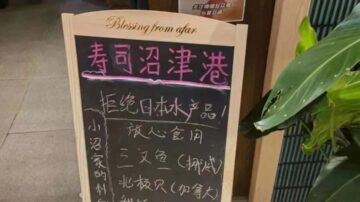 Blessing from afar
寿司沼津港
拒绝日本水产品!
放心食用
三文鱼(挪威)
北极贝(加拿大)
小沼家的